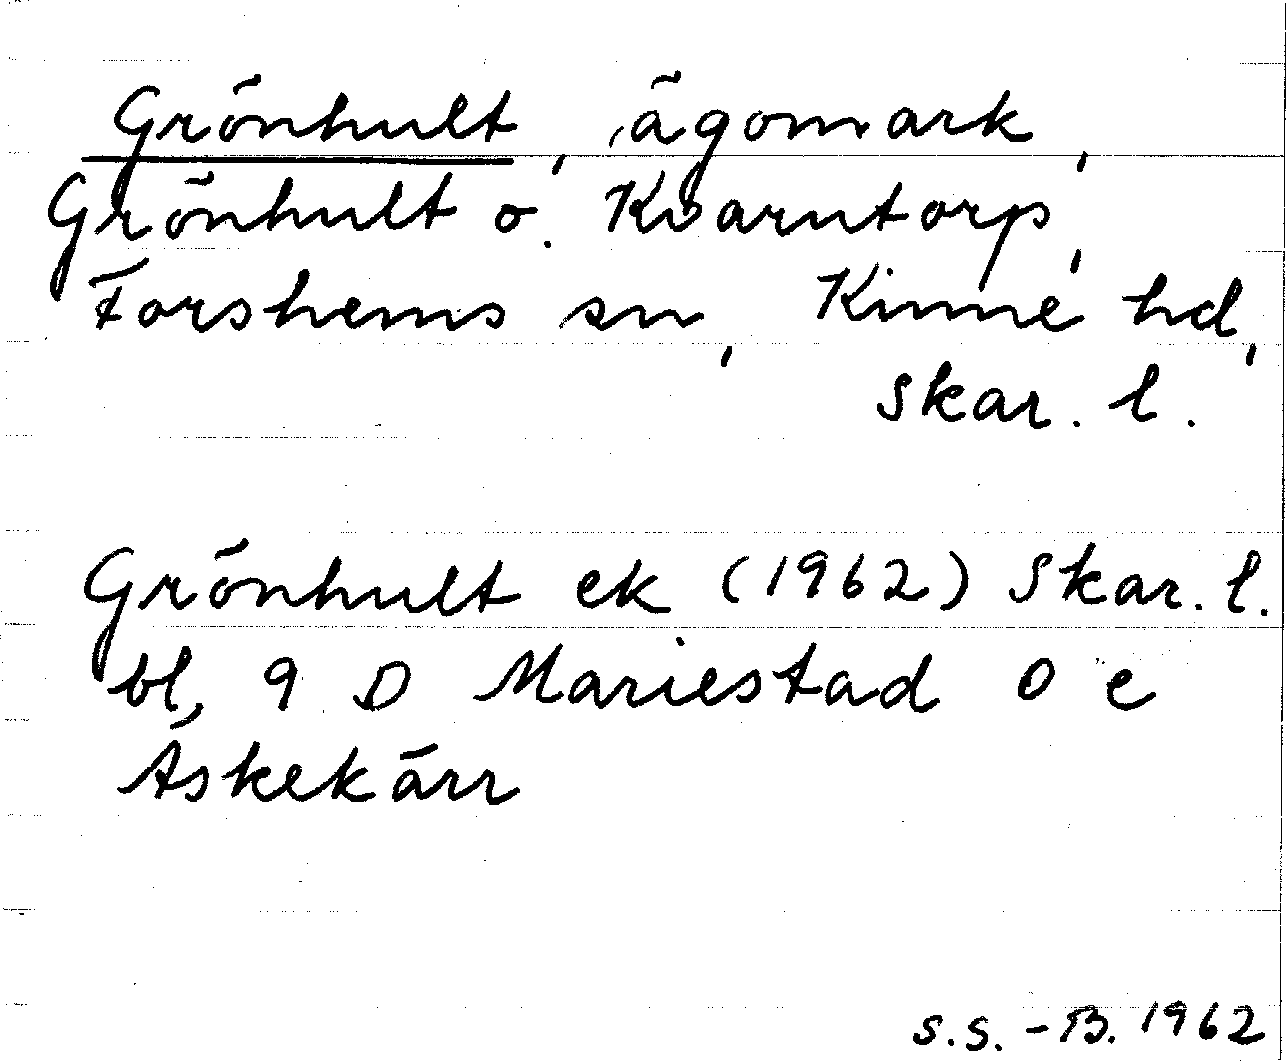 Grönhult, ägomark,
Grönhult o. Kvarntorp,
Forshems sn, Kinne hd,
Skar. l.
Grönhult ek (1962) Skar. l.
bl, 9 D Mariestad 0 e
Äskekärr
S.S. - B. 1962